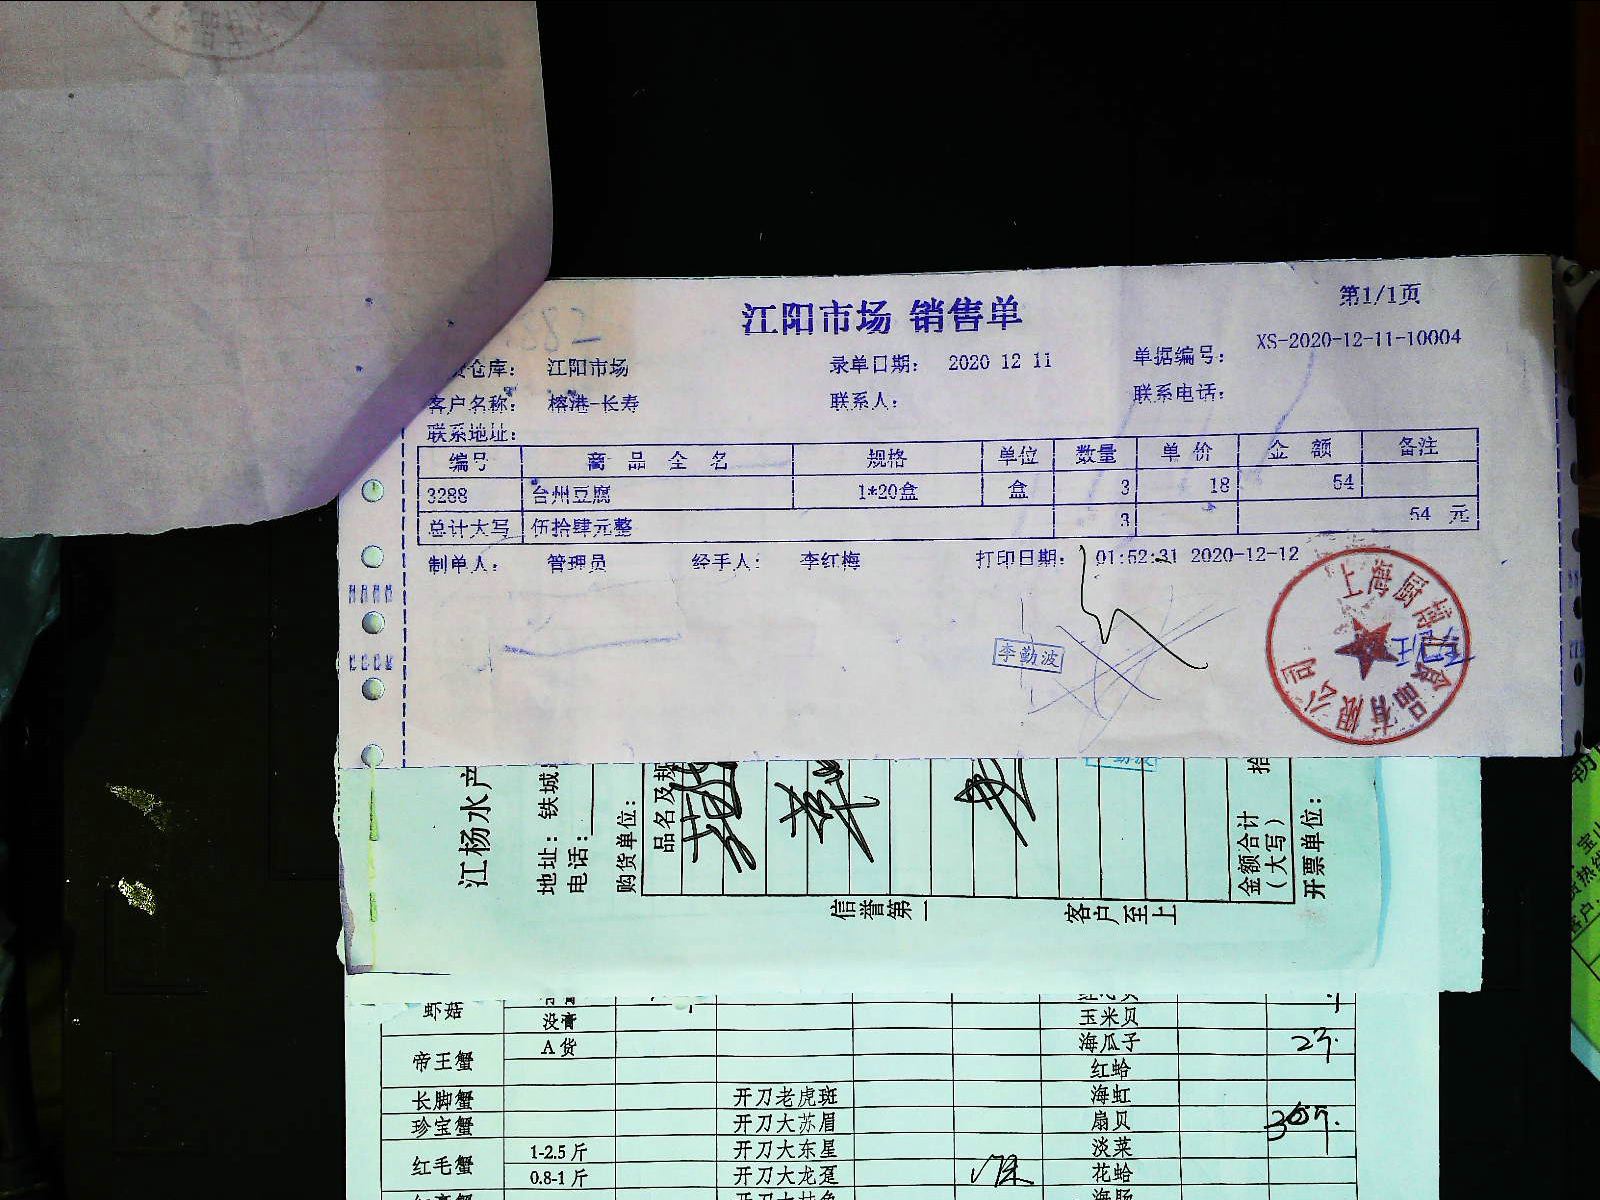 江阳市场 销售单
第1/1页
仓库： 江阳市场 录单日期： 2020 12 11 单据编号： XS-2020-12-11-10004
客户名称： 榕港-长寿 联系人： 联系电话：
联系地址：
编号 商品全名 规格 单位 数量 单价 金额 备注
3288 台州豆腐 1*20盒 盒 3 18 54
总计大写 伍拾肆元整 3 54 元
制单人： 管理员 经手人： 李红梅 打印日期： 01:52:31 2020-12-12
李勤波
上海厨 食品有限公司
江杨水产
地址：铁城
电话：
购货单位：
品名及规
金额合计
（大写）
拾
开票单位：
信誉第一 客户至上
虾菇 没膏 玉米贝
帝王蟹 A货 海瓜子
红蛤
长脚蟹 开刀老虎斑 海虹
珍宝蟹 开刀大苏眉 扇贝
红毛蟹 1-2.5斤 开刀大东星 淡菜
0.8-1斤 开刀大龙趸 花蛤
海肠